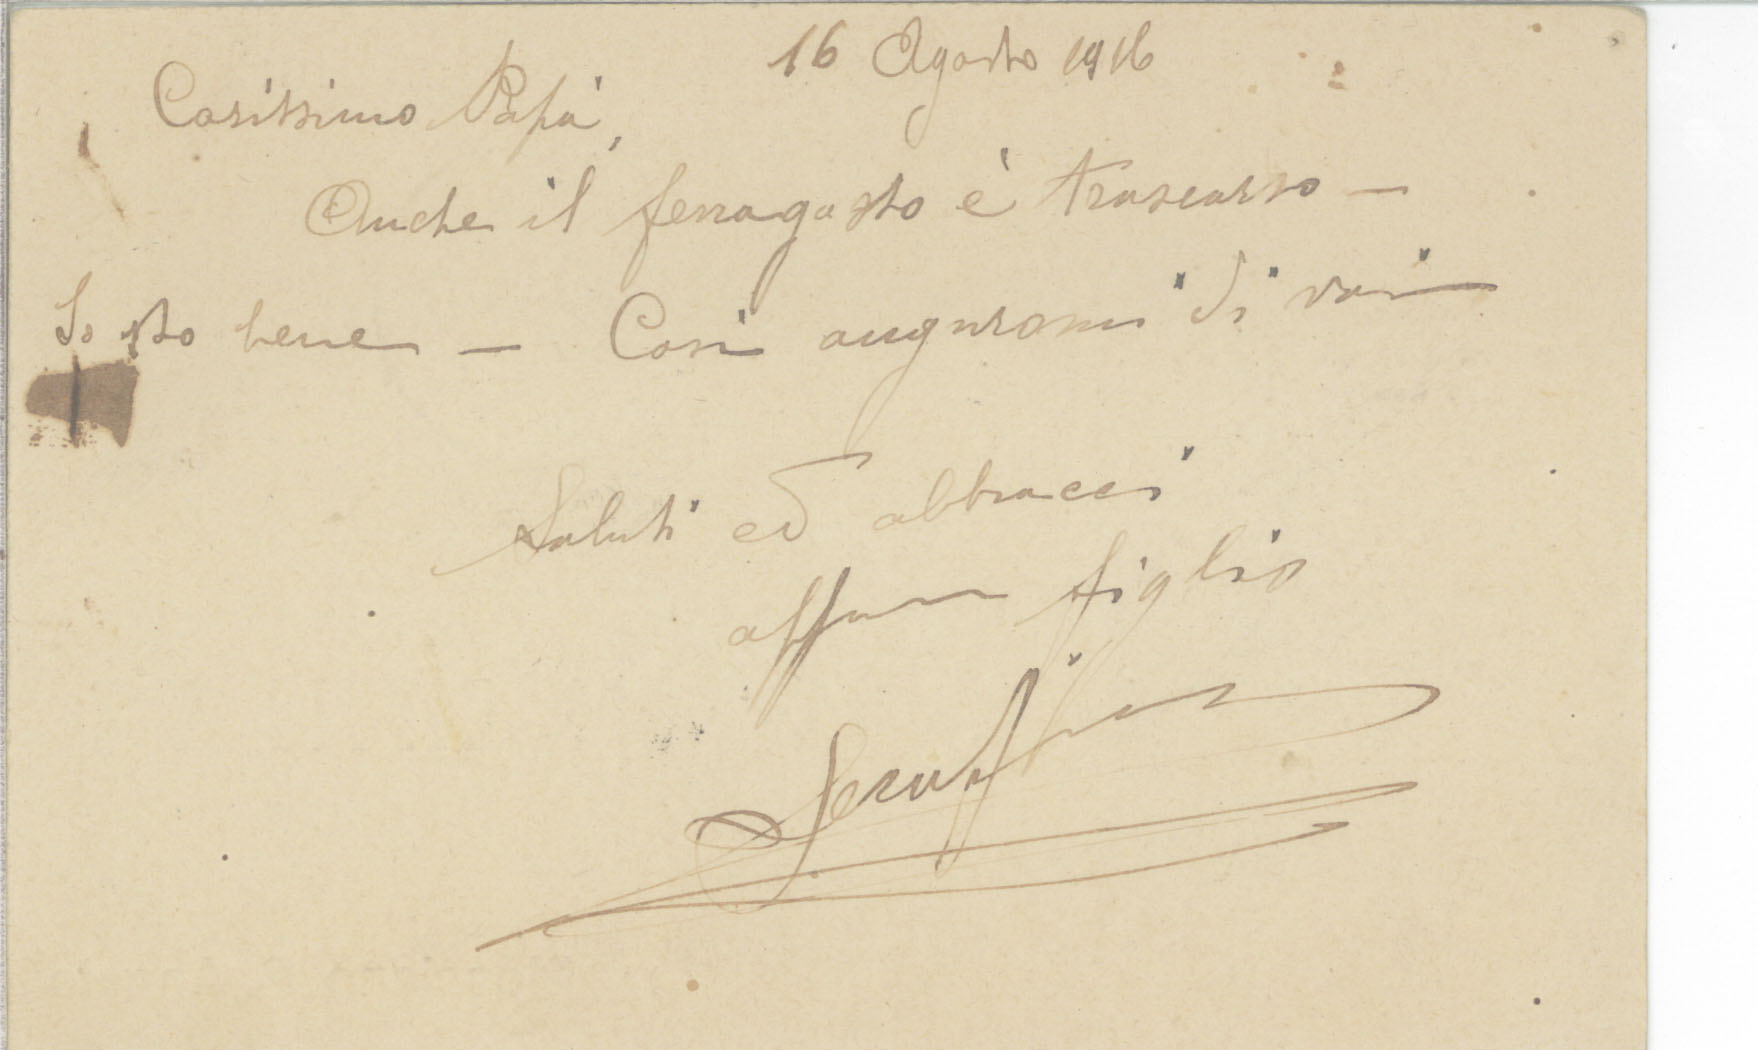 16 Agosto 1916
Carissimo Papà,
Anche il ferragosto è trascorso —
Io sto bene — Così auguromi di voi
Saluti ed abbracci
affmo figlio